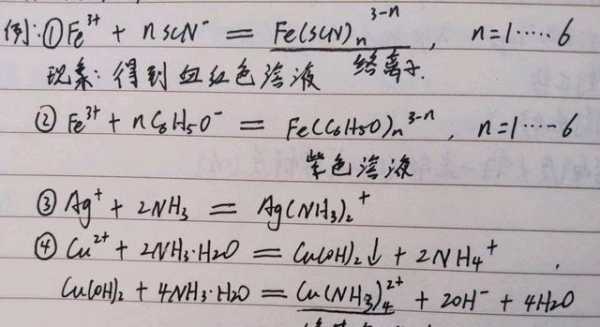 例:①Fe³⁺ + nSCN⁻ = Fe(SCN)ₙ³⁻ⁿ , n=1·····6
现象: 得到血红色溶液 络离子.
②Fe³⁺ + nC₆H₅O⁻ = Fe(C₆H₅O)ₙ³⁻ⁿ , n=1····6
紫色溶液
③Ag⁺ + 2NH₃ = Ag(NH₃)₂⁺
④Cu²⁺ + 2NH₃·H₂O = Cu(OH)₂↓ + 2NH₄⁺
Cu(OH)₂ + 4NH₃·H₂O = Cu(NH₃)₄²⁺ + 2OH⁻ + 4H₂O